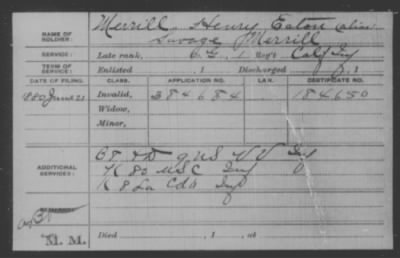 NAME OF SOLDIER: Merrill, Henry Eaton alias
Savage Merrill
SERVICE: Late rank, Co. G, 1 Reg't Calif Inf
TERM OF SERVICE: Enlisted , 1 Discharged , 1
DATE OF FILING. CLASS. APPLICATION NO. LAW. CERTIFICATE NO.
1880 June 21 Invalid, 384684 184650
Widow,
Minor,
ADDITIONAL SERVICES: G 8 US V V Inf
K 80 U S C Inf
K 8 La Cda Inf
M. M.
Died , 1 , at